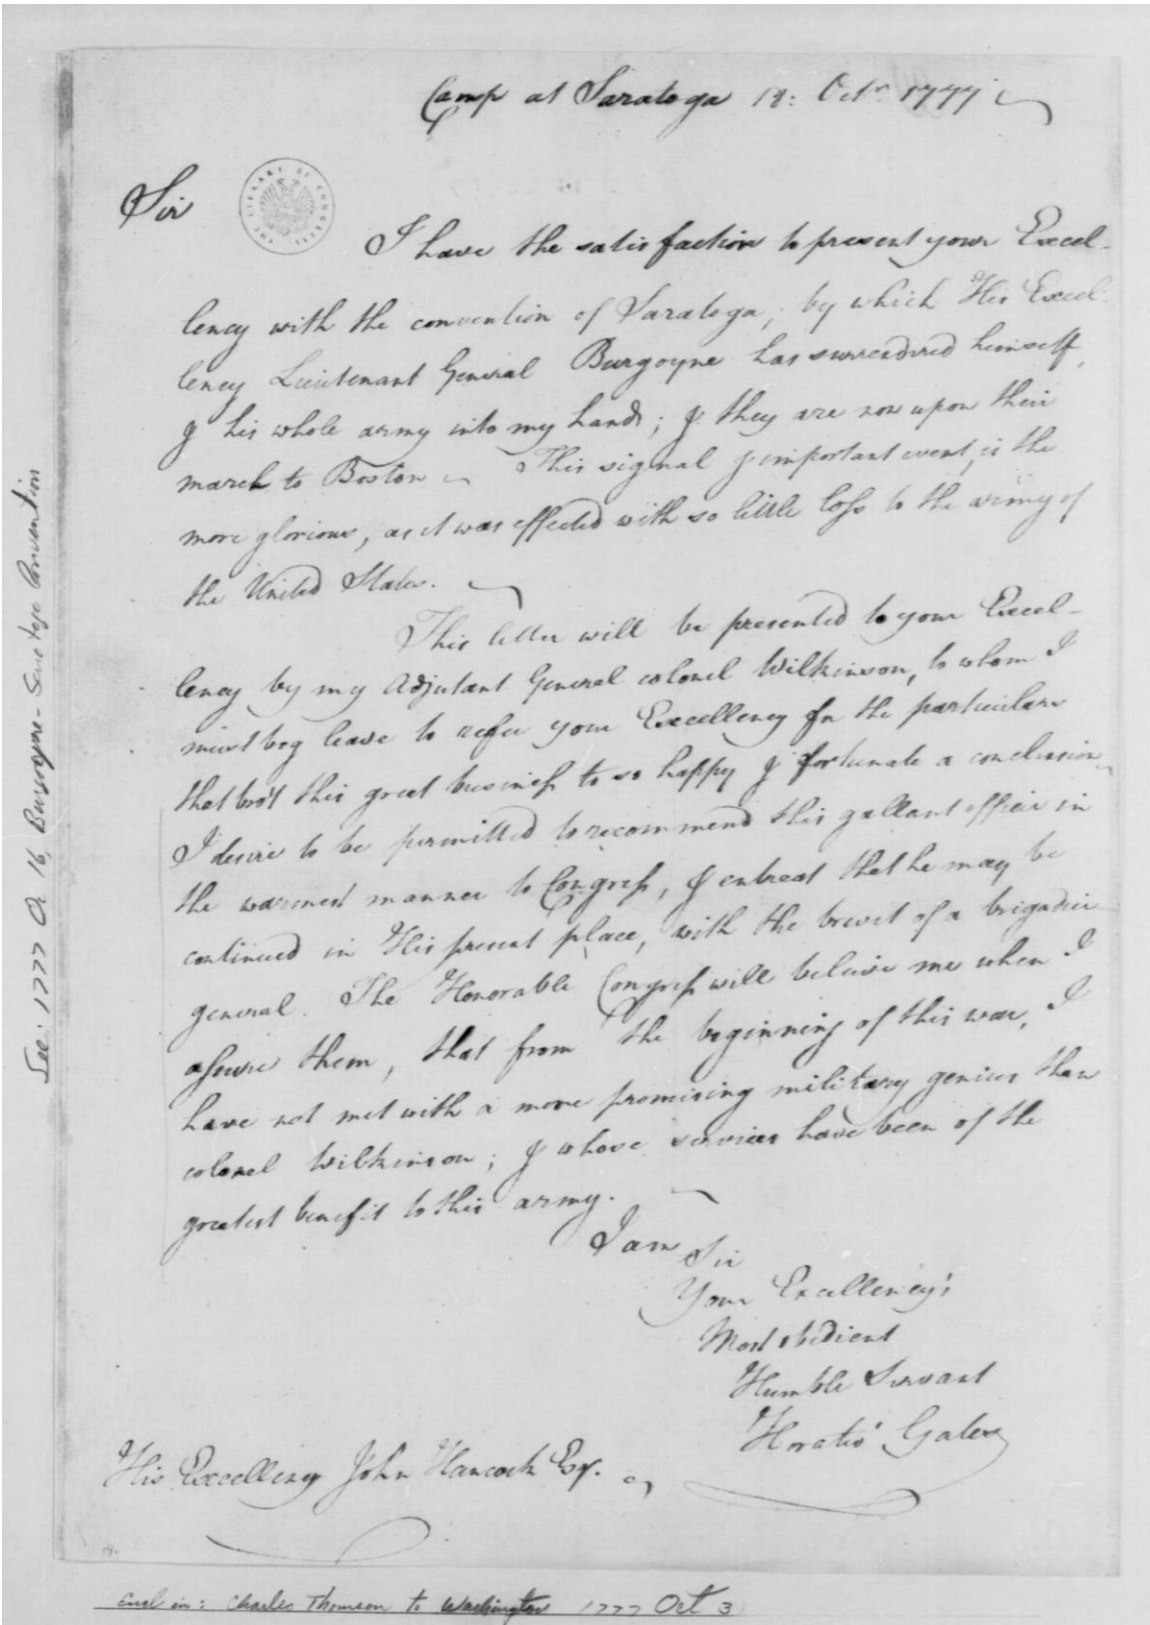 Camp at Saratoga 18: Octr. 1777
Sir
THE LIBRARY OF CONGRESS
I have the satisfaction to present your Excel-
lency with the convention of Saratoga, by which His Excel-
lency Lieutenant General Burgoyne has surrendered himself,
& his whole army into my hands; & they are now upon their
march to Boston This signal & important event, is the
more glorious, as it was effected with so little loss to the army of
the United States.
This letter will be presented to your Excel-
lency by my Adjutant General colonel Wilkinson, to whom I
must beg leave to refer your Excellency for the particulars
that bro't this great business to so happy & fortunate a conclusion
I desire to be permitted to recommend this gallant officer in
the warmest manner to Congress, & entreat that he may be
continued in His present place, with the brevet of a brigadier
general. The Honorable Congress will beleive me when I
assure them, that from the beginning of this war, I
have not met with a more promising military genius than
colonel Wilkinson; & whose services have been of the
greatest benefit to this army.
I am Sir
Your Excellency's
Most obedient
Humble Servant
Horatio Gates
His Excellency John Hancock Esq.
See: 1777 Oc 16, Burgoyne - Saratoga Convention
encl in: Charles Thomson to Washington 1777 Oct 3